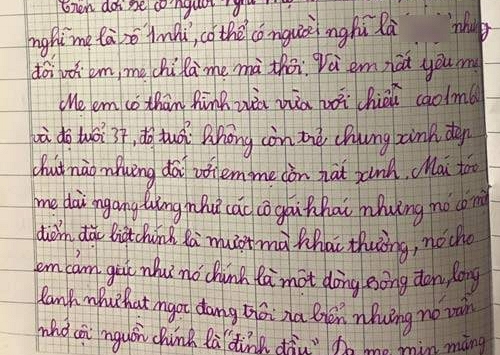 trên đời sẽ có người nghĩ
nghĩ mẹ là số 1 nhi, có thể có người nghĩ là nhưng
đối với em, mẹ chỉ là mẹ mà thôi. Và em rất yêu mẹ
Mẹ em có thân hình vừa vừa với chiều cao 1m60
và độ tuổi 37, độ tuổi không còn trẻ chung xinh đẹp
chút nào nhưng đối với em mẹ còn rất xinh. Mái tóc
mẹ dài ngang lưng như các cô gái khác nhưng nó có một
điểm đặc biệt chính là mượt mà khác thường, nó cho
em cảm giác như nó chính là một dòng sông đen, long
lanh như hạt ngọc đang trôi ra biển nhưng nó vẫn
nhớ cội nguồn chính là "đỉnh đầu" Da mẹ mịn màng